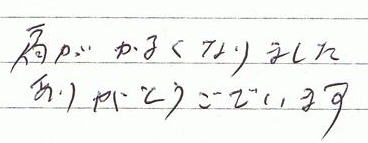 肩がかるくなりました
ありがとうございます